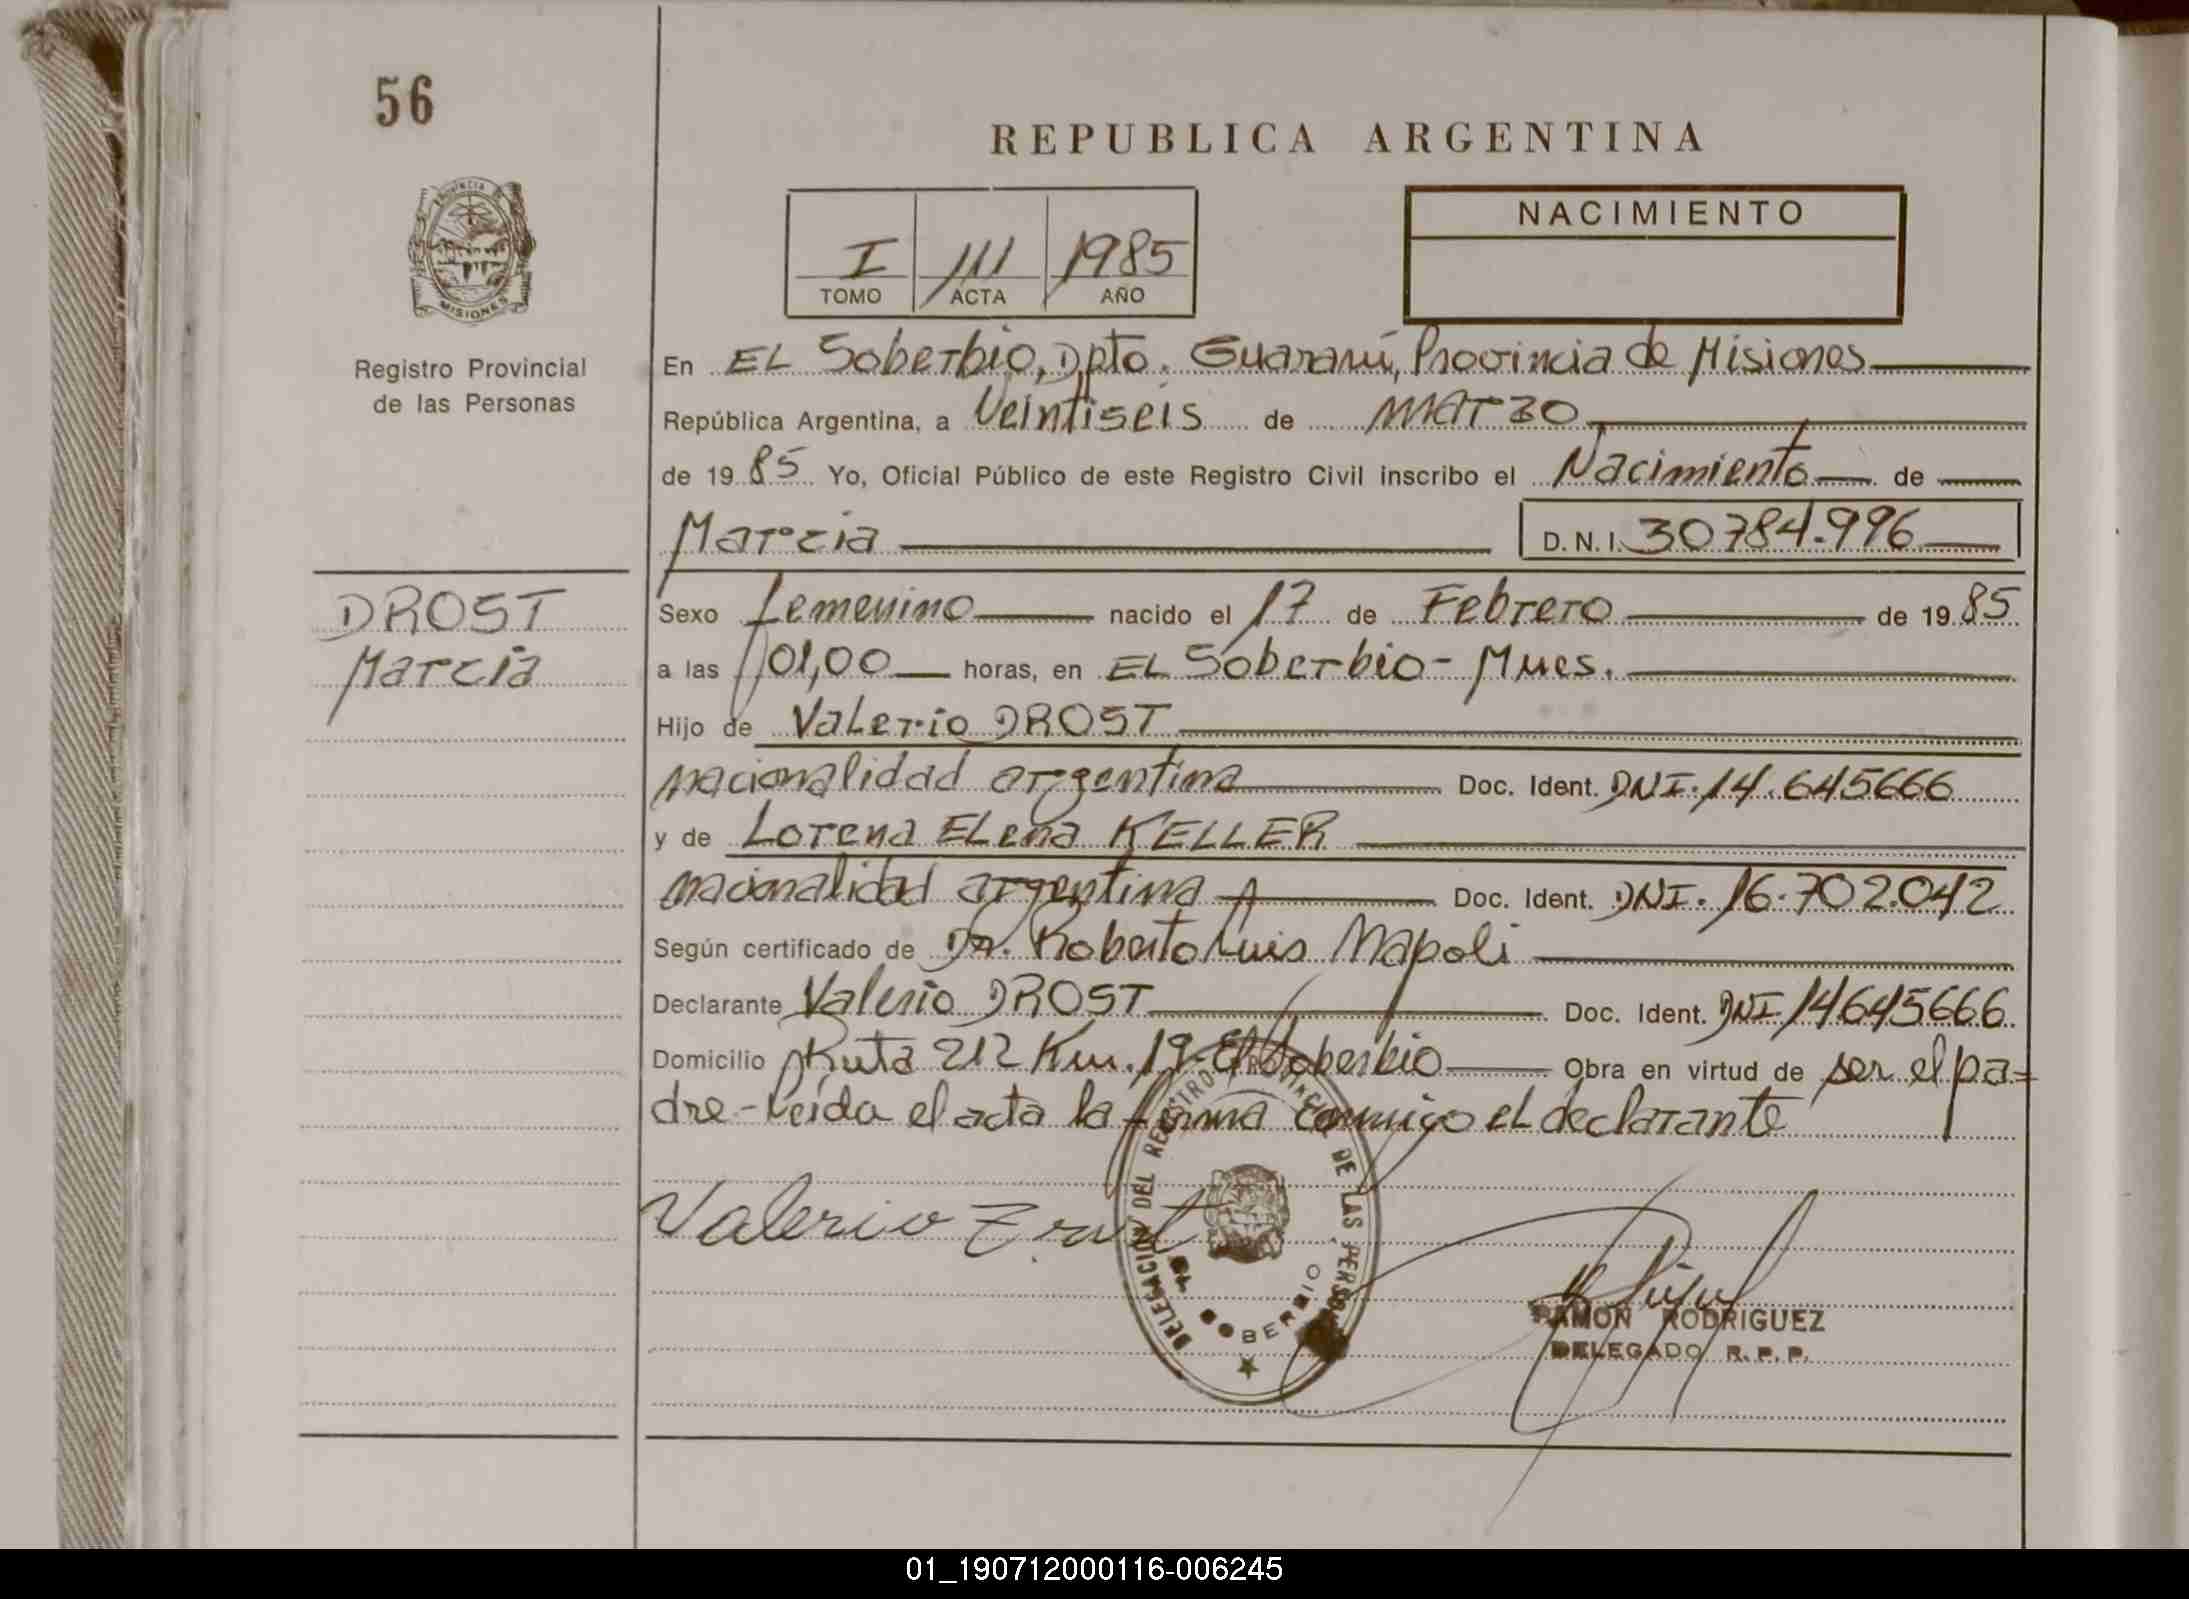 56
REPUBLICA ARGENTINA
NACIMIENTO
I 111 1985
TOMO ACTA AÑO
PROVINCIA DE
MISIONES
Registro Provincial
de las Personas
En EL Soberbio, Dpto. Guaraní, Provincia de Misiones
República Argentina, a Veintiseis de Marzo
de 1985 Yo, Oficial Público de este Registro Civil inscribo el Nacimiento de
Marcia D.N.I. 30784.996
DROST
Marcia
Sexo femenino nacido el 17 de Febrero de 1985
a las 01,00 horas, en EL Soberbio - Mnes.
Hijo de Valerio DROST
nacionalidad argentina Doc. Ident. DNI. 14.645666
y de Lorena ELena KELLER
nacionalidad argentina Doc. Ident. DNI. 16.702.042
Según certificado de Dr. Roberto Luis Napoli
Declarante Valerio DROST Doc. Ident. DNI 14645666
Domicilio Ruta 212 Km. 19 - El Soberbio Obra en virtud de ser el pa=
dre - Leída el acta la firma conmigo el declarante
Valerio
DELEGACION DEL REGISTRO PROVINCIAL DE LAS PERSONAS
EL SOBERBIO
RAMON RODRIGUEZ
DELEGADO R.P.P.
01_190712000116-006245